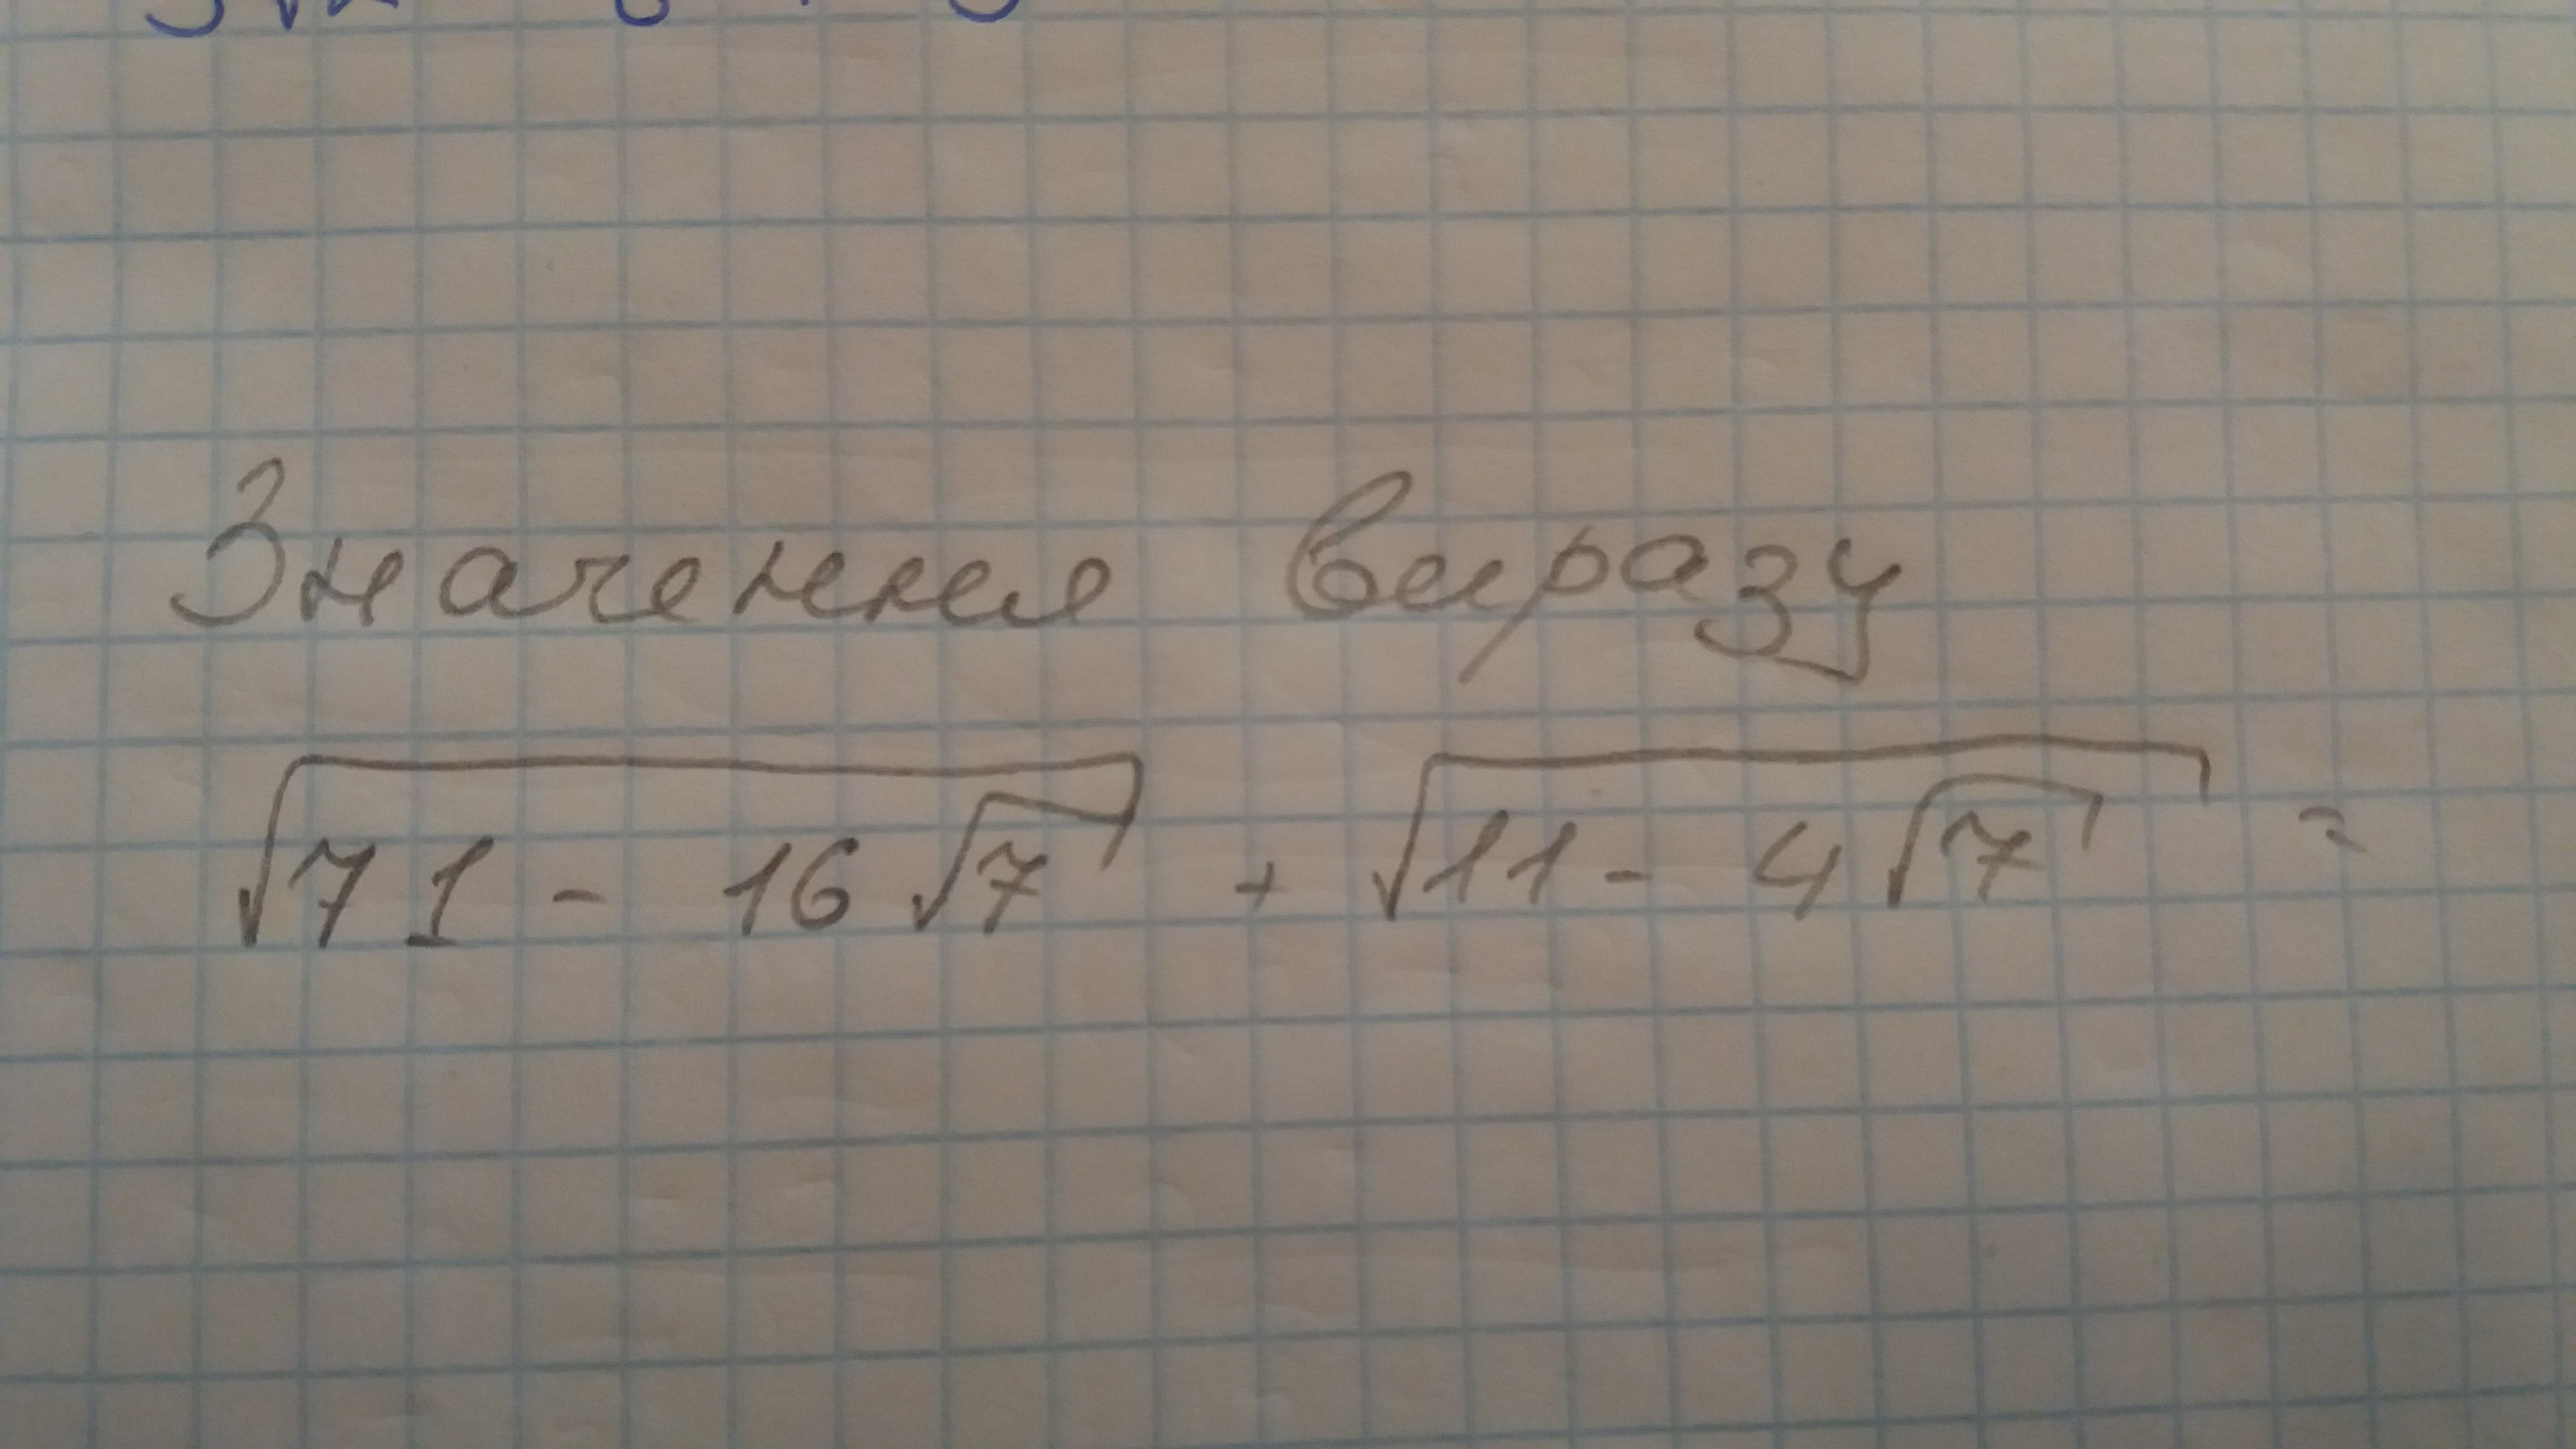 Значення виразу
√(71 - 16√7) + √(11 - 4√7) =